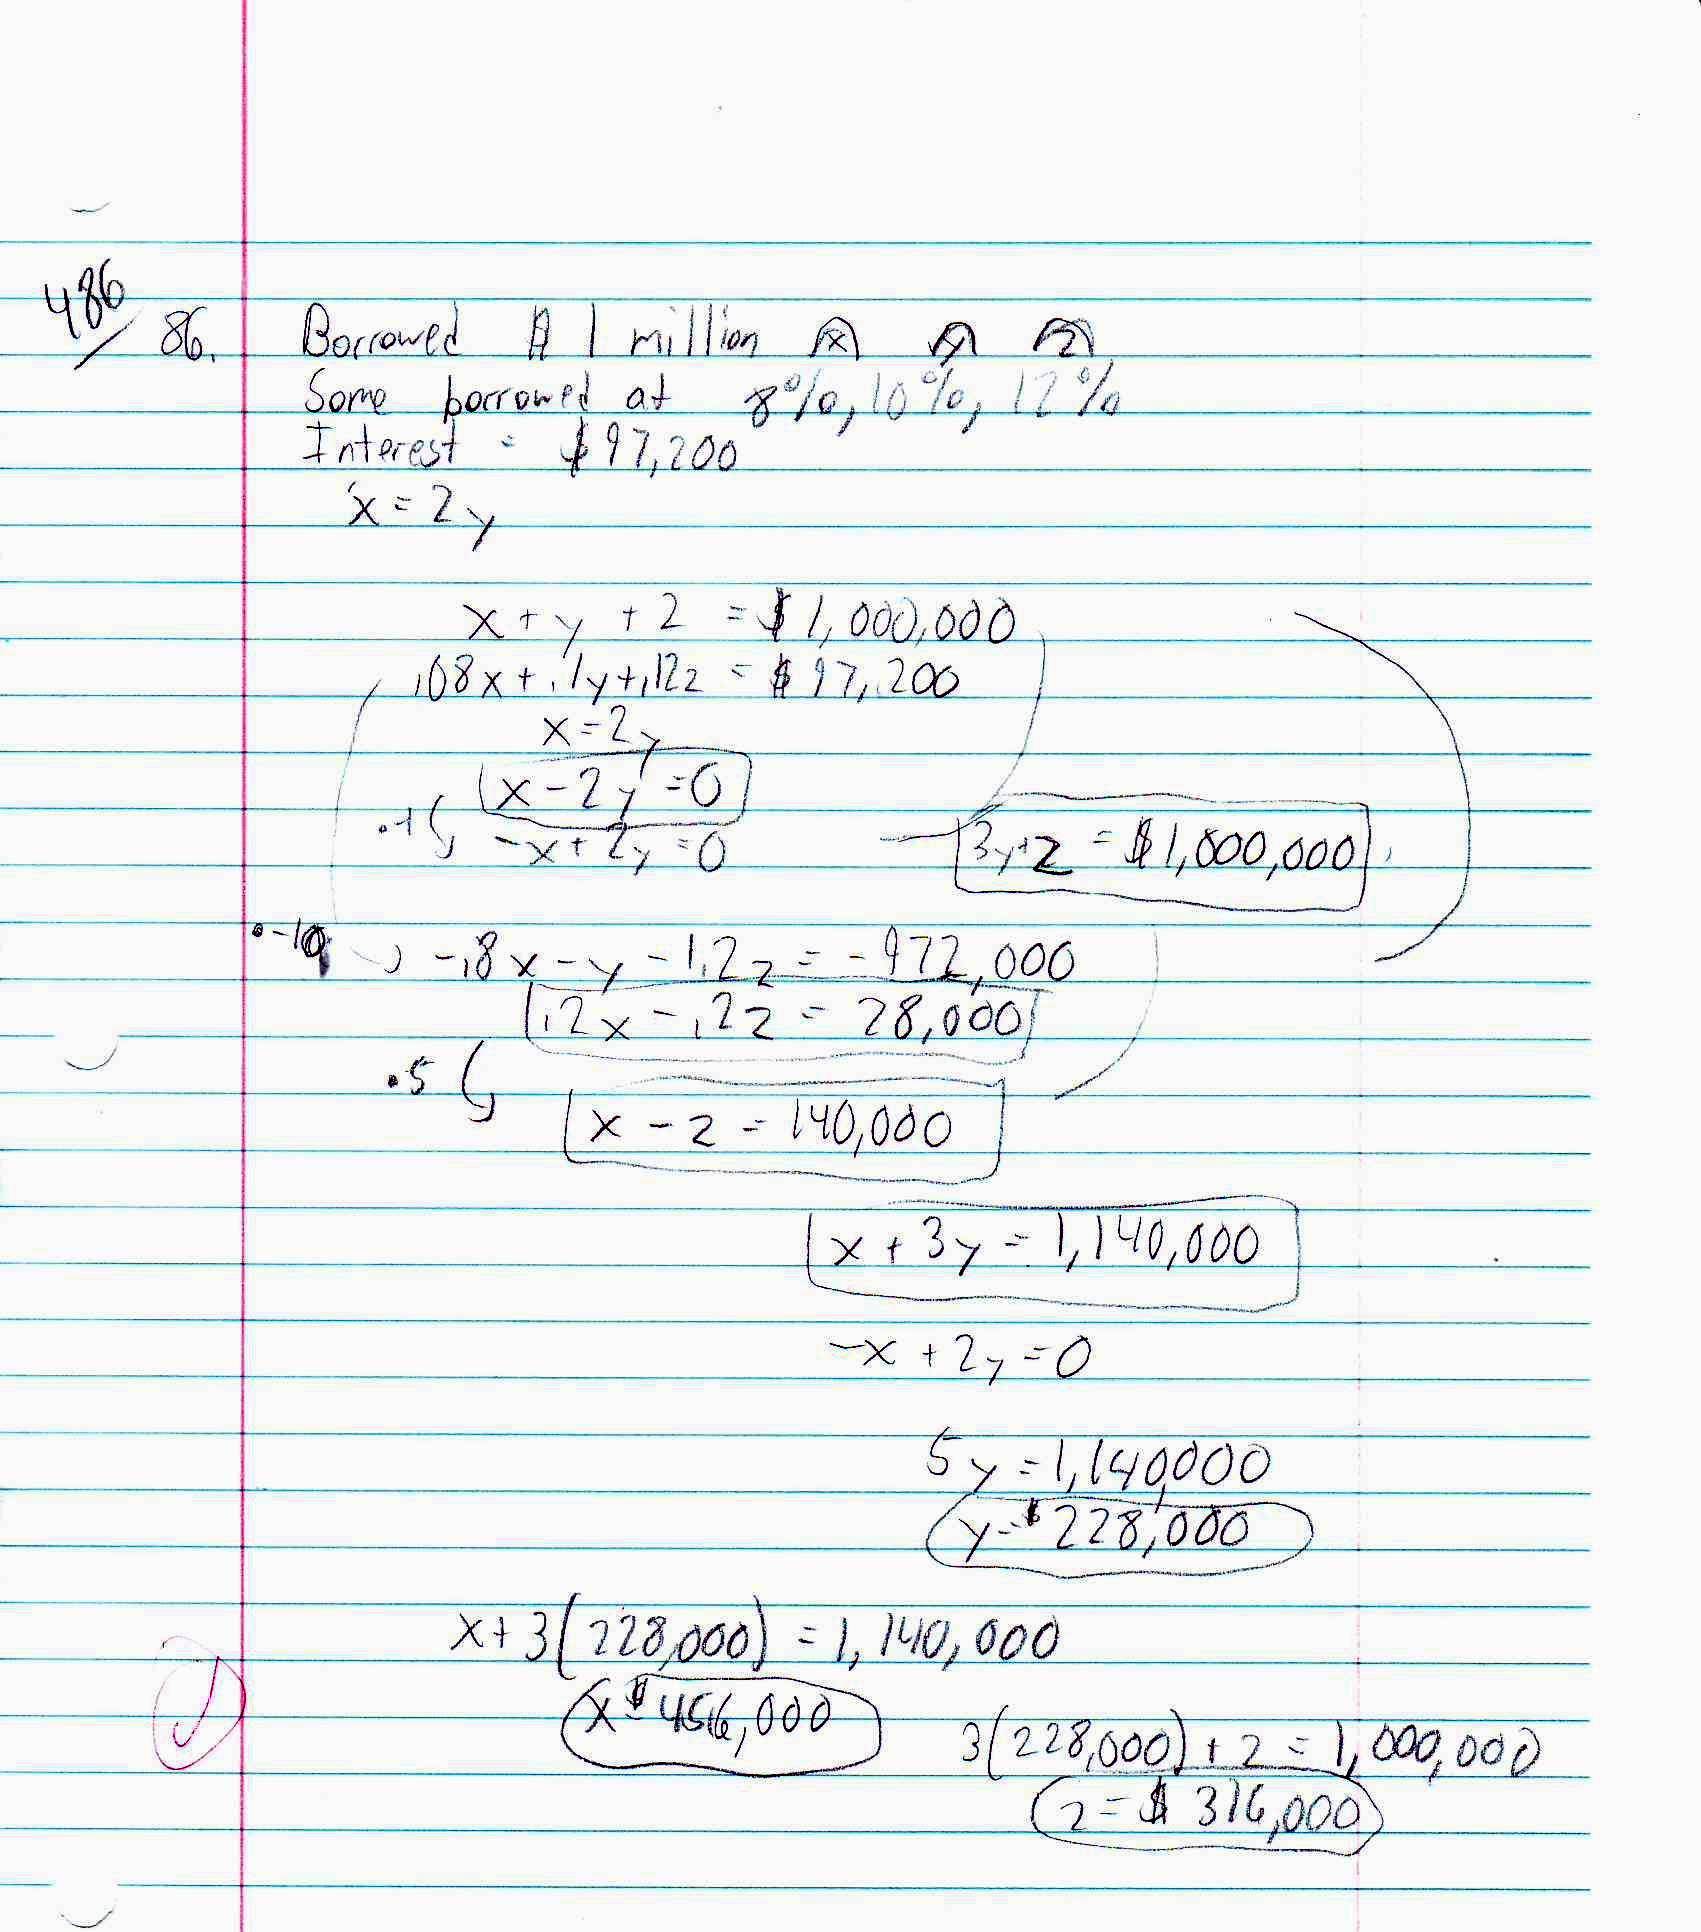 486
86. Borrowed $ 1 million x y z
Some borrowed at 8%, 10%, 12%
Interest = $97,200
x = 2y
x + y + z = $1,000,000
.08x + .1y + .12z = $97,200
x = 2y
x - 2y = 0
·-1 -x + 2y = 0
3y + z = $1,000,000
·-10 -.8x - y - 1.2z = -972,000
.2x - .2z = 28,000
·5 x - z = 140,000
x + 3y = 1,140,000
-x + 2y = 0
5y = 1,140,000
y = $228,000
x + 3(228,000) = 1,140,000
x = $456,000
3(228,000) + z = 1,000,000
z = $316,000